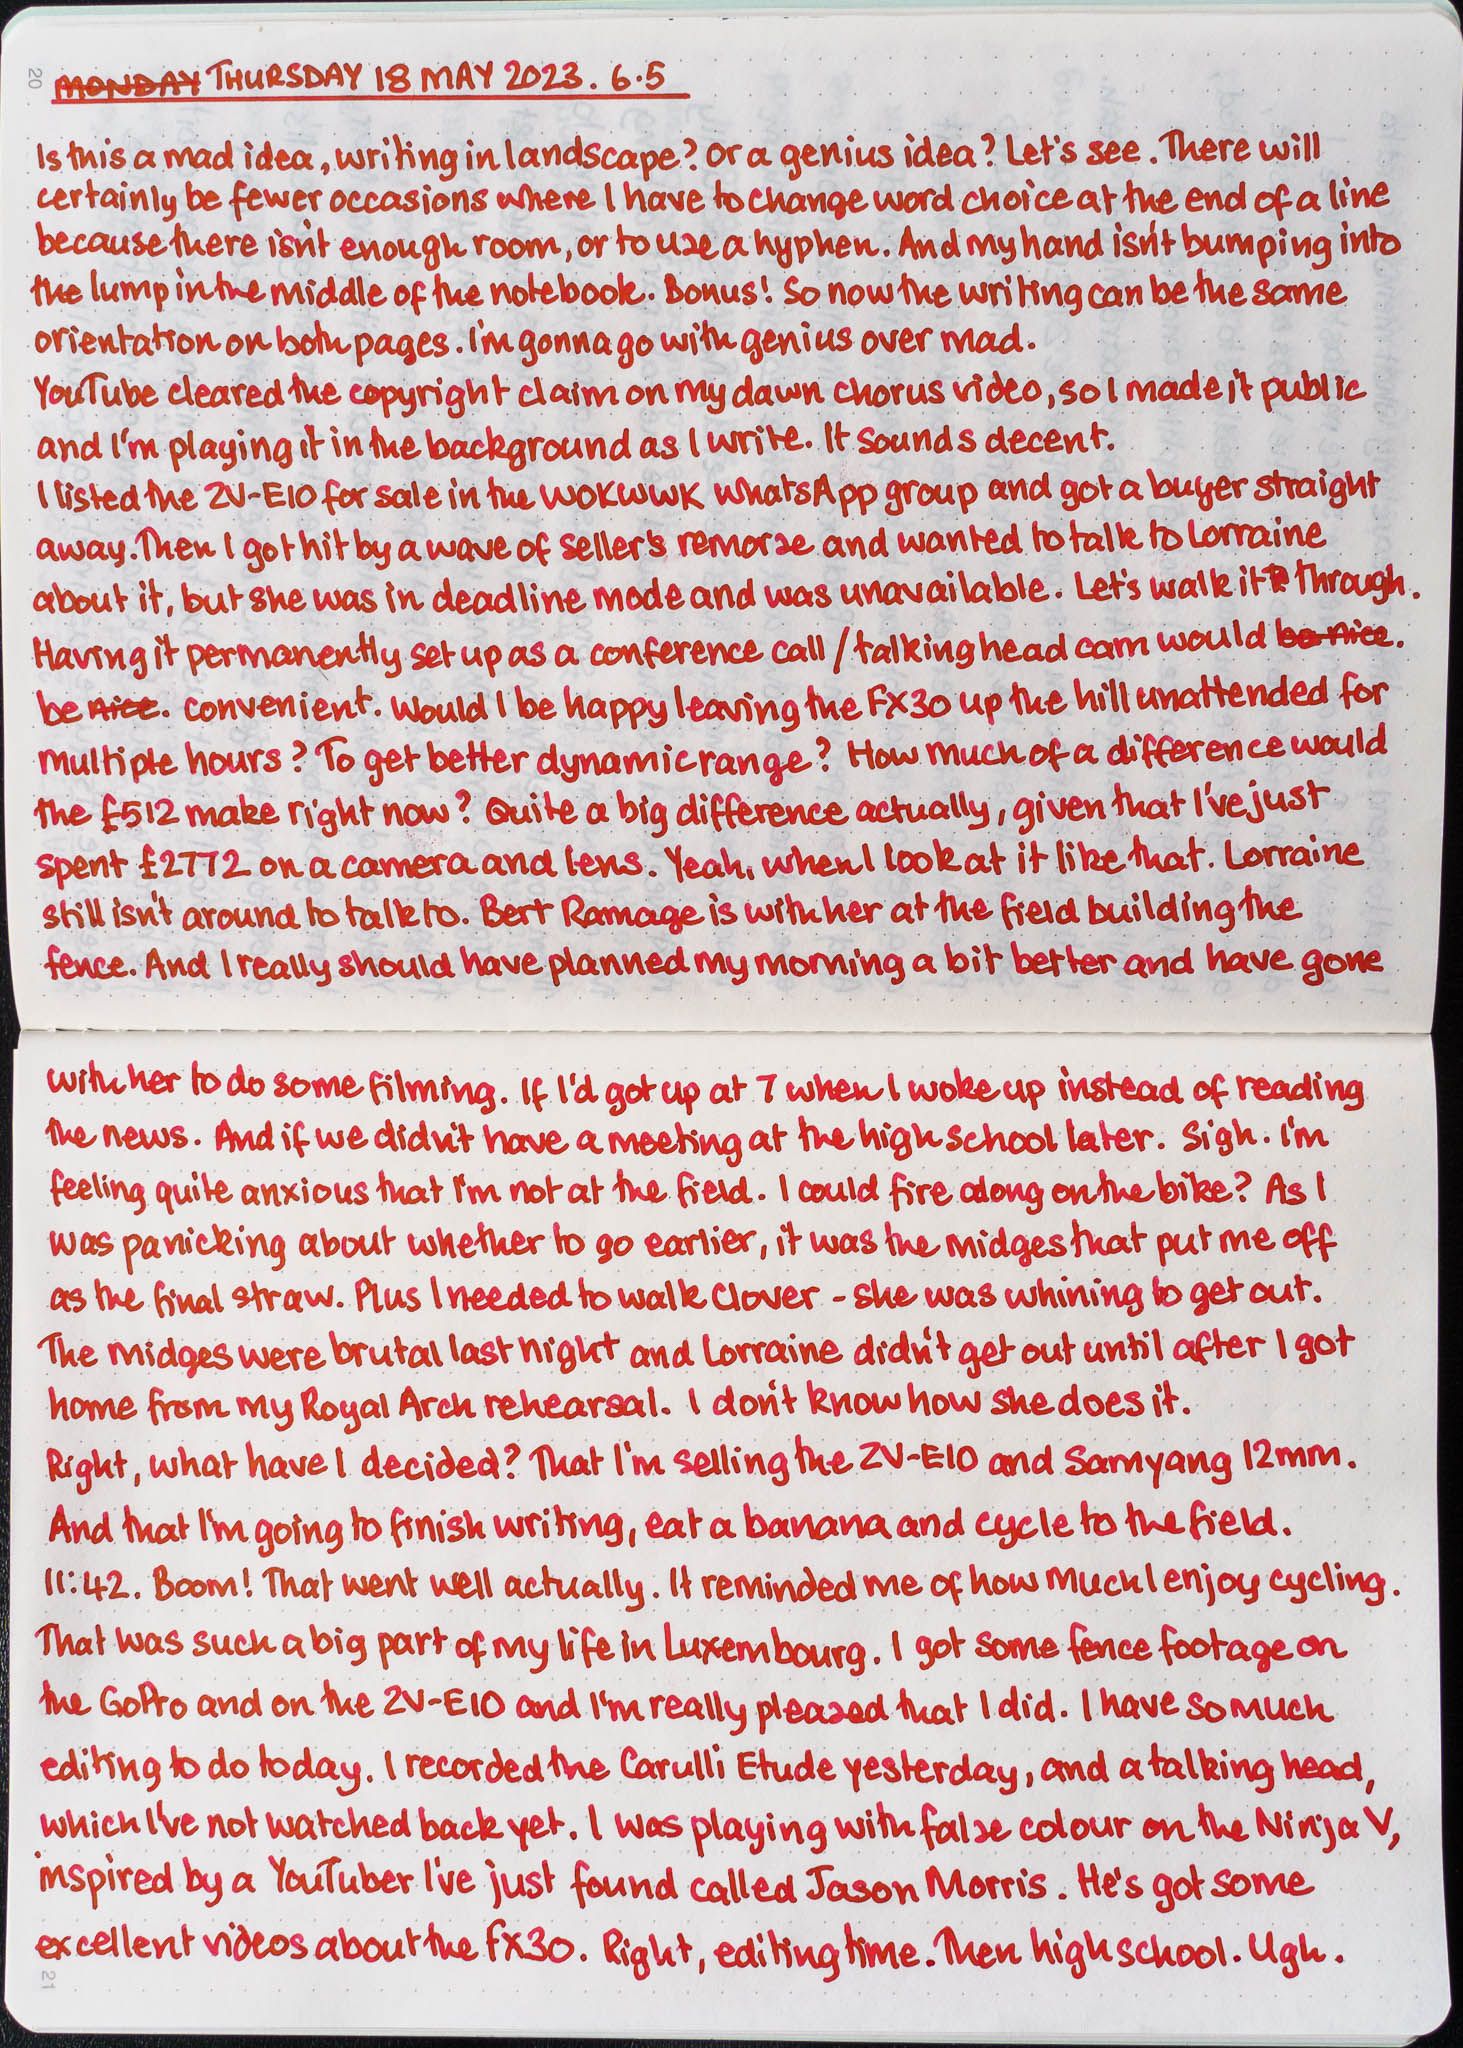 20
MONDAY THURSDAY 18 MAY 2023. 6.5
Is this a mad idea, writing in landscape? Or a genius idea? Let's see. There will
certainly be fewer occasions where I have to change word choice at the end of a line
because there isn't enough room, or to use a hyphen. And my hand isn't bumping into
the lump in the middle of the notebook. Bonus! So now the writing can be the same
orientation on both pages. I'm gonna go with genius over mad.
YouTube cleared the copyright claim on my dawn chorus video, so I made it public
and I'm playing it in the background as I write. It sounds decent.
I listed the ZV-E10 for sale in the WOKWWK WhatsApp group and got a buyer straight
away. Then I got hit by a wave of seller's remorse and wanted to talk to Lorraine
about it, but she was in deadline mode and was unavailable. Let's walk it through.
Having it permanently set up as a conference call / talking head cam would be nice.
be nice. convenient. Would I be happy leaving the FX30 up the hill unattended for
multiple hours? To get better dynamic range? How much of a difference would
the £512 make right now? Quite a big difference actually, given that I've just
spent £2772 on a camera and lens. Yeah, when I look at it like that. Lorraine
still isn't around to talk to. Bert Ramage is with her at the field building the
fence. And I really should have planned my morning a bit better and have gone
with her to do some filming. If I'd got up at 7 when I woke up instead of reading
the news. And if we didn't have a meeting at the high school later. Sigh. I'm
feeling quite anxious that I'm not at the field. I could fire along on the bike? As I
was panicking about whether to go earlier, it was the midges that put me off
as the final straw. Plus I needed to walk Clover - she was whining to get out.
The midges were brutal last night and Lorraine didn't get out until after I got
home from my Royal Arch rehearsal. I don't know how she does it.
Right, what have I decided? That I'm selling the ZV-E10 and Samyang 12mm.
And that I'm going to finish writing, eat a banana and cycle to the field.
11:42. Boom! That went well actually. It reminded me of how much I enjoy cycling.
That was such a big part of my life in Luxembourg. I got some fence footage on
the GoPro and on the ZV-E10 and I'm really pleased that I did. I have so much
editing to do today. I recorded the Carulli Etude yesterday, and a talking head,
which I've not watched back yet. I was playing with false colour on the Ninja V,
inspired by a YouTuber I've just found called Jason Morris. He's got some
excellent videos about the FX30. Right, editing time. Then high school. Ugh.
21